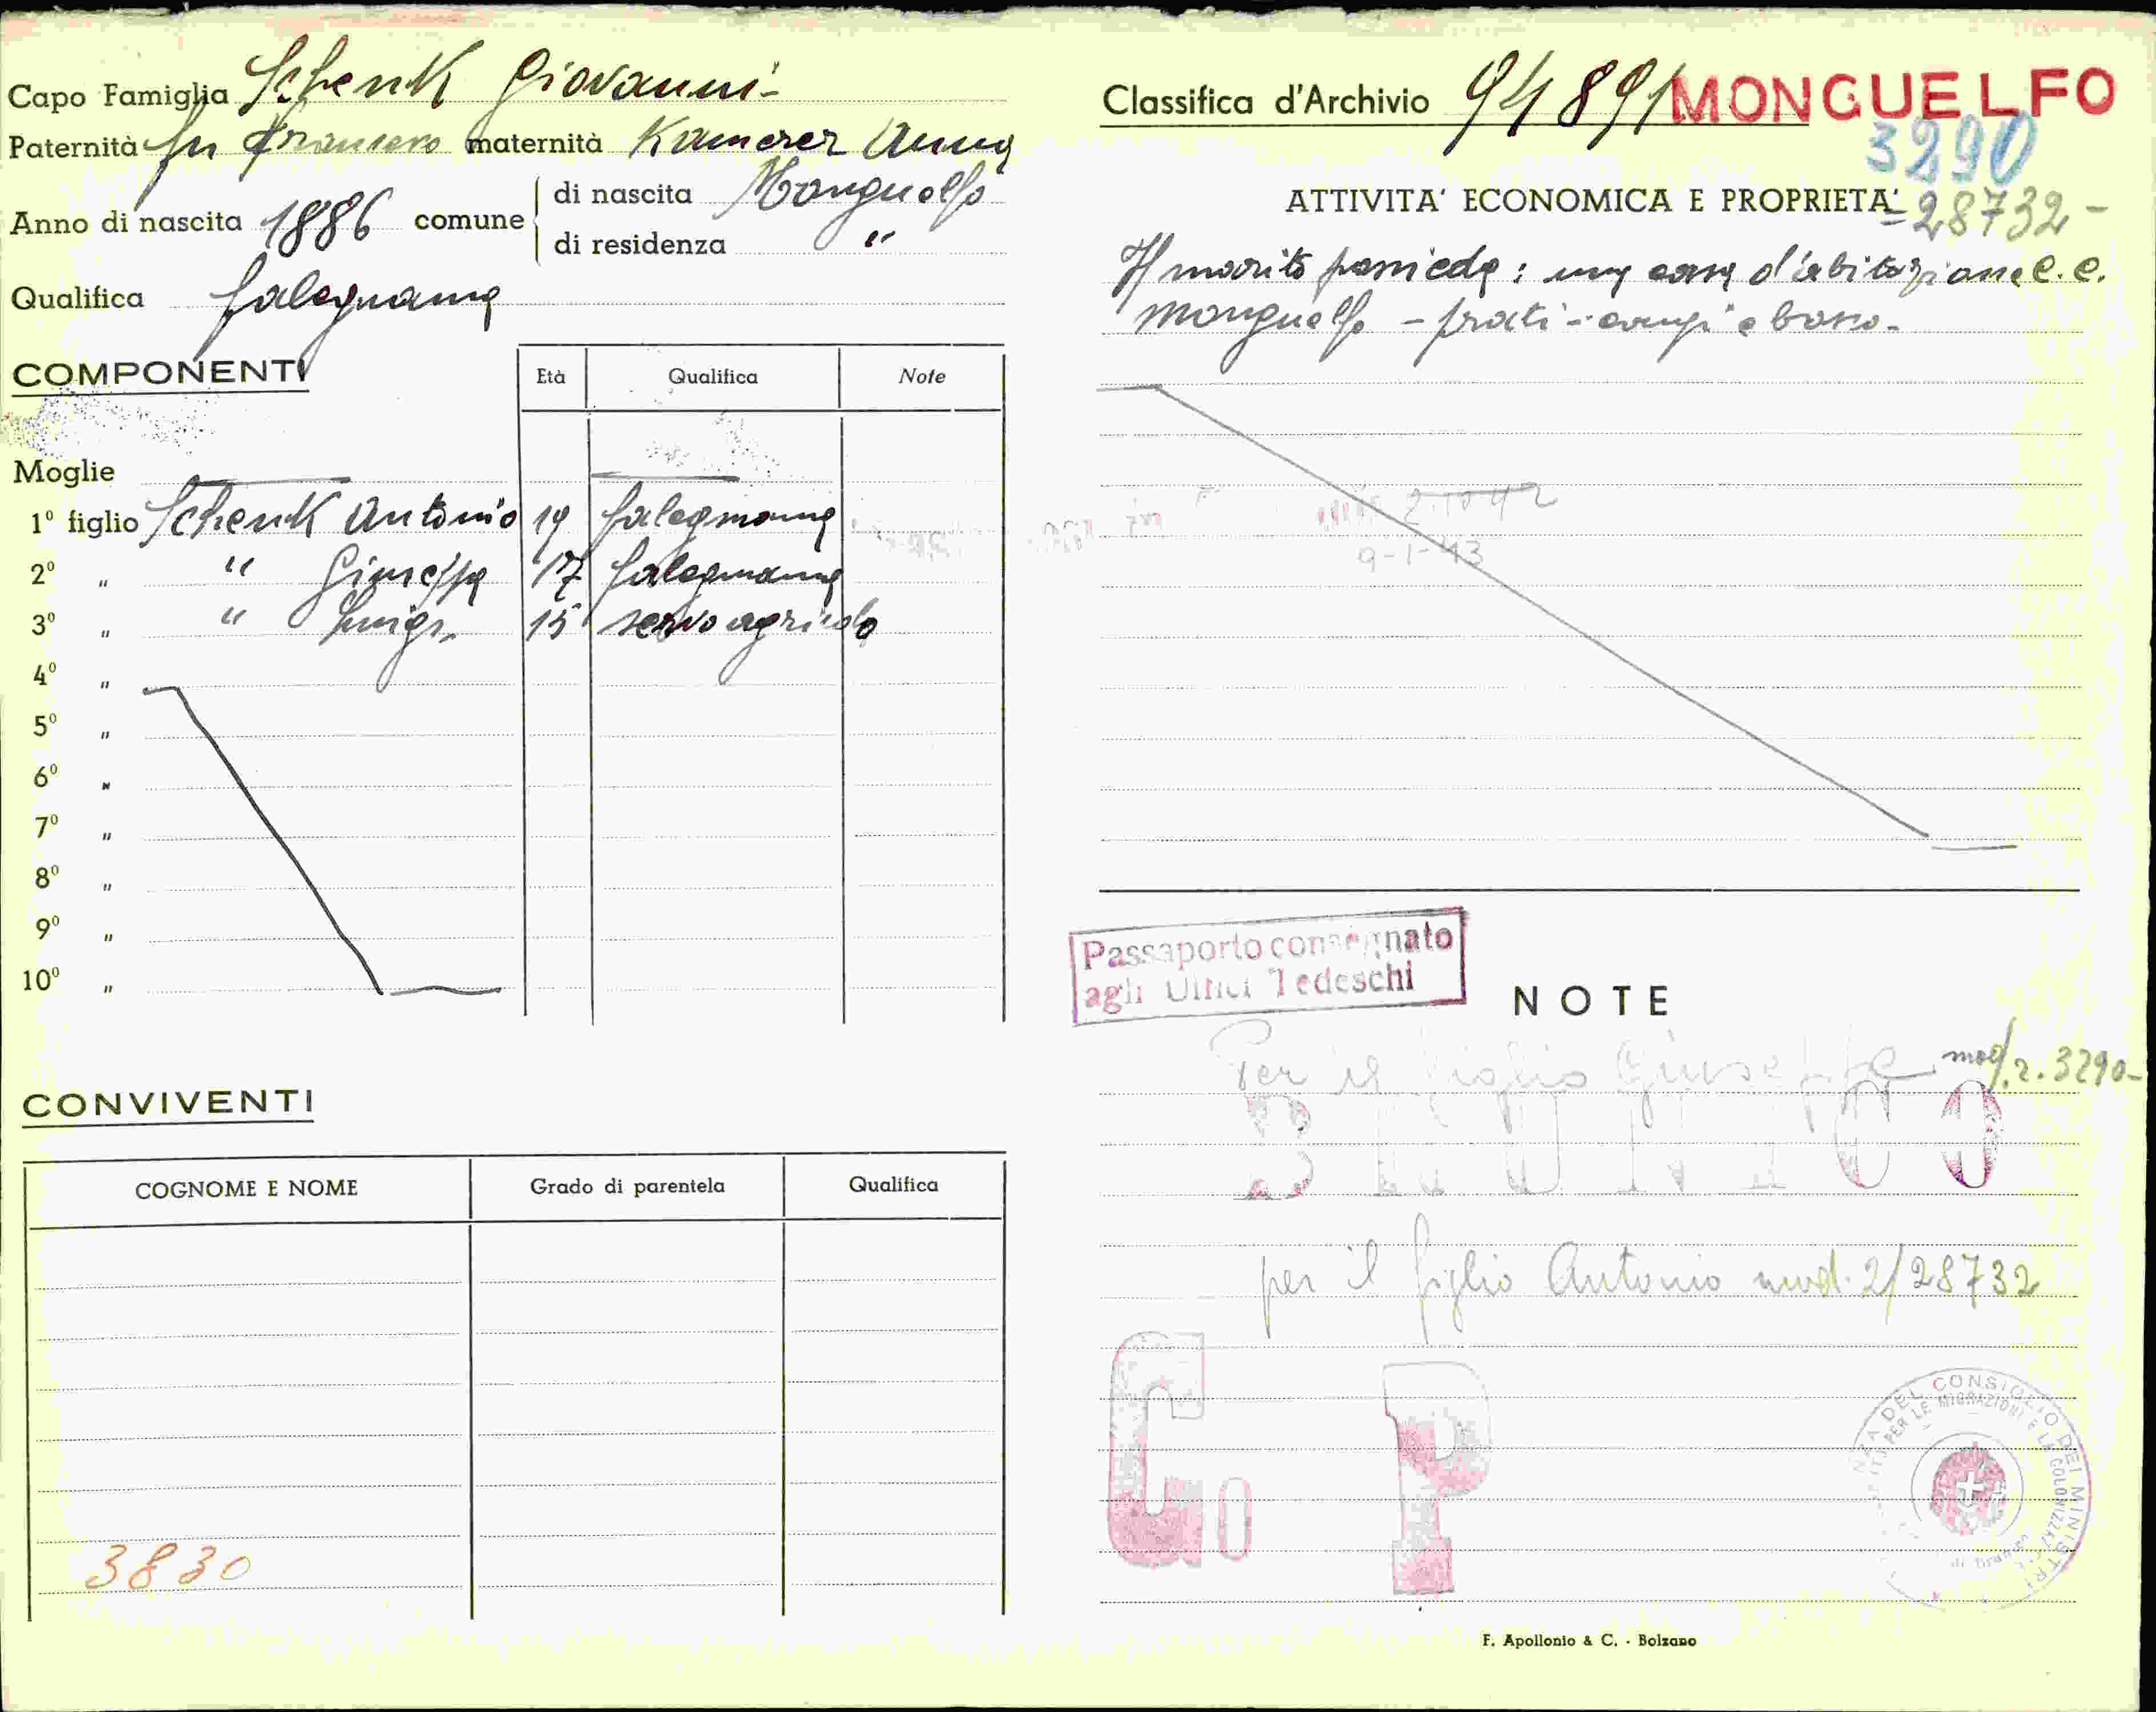 Capo Famiglia Schenk Giovanni-
Paternità fu Francesco maternità Kamerer Anna
Anno di nascita 1886 comune di nascita Monguelfo
di residenza "
Qualifica falegname
COMPONENTI
Età Qualifica Note
Moglie
1° figlio Schenk Antonio 19 falegname
2° " " Giuseppe 17 falegname
3° " " Luigi 15 servo agricolo
4° "
5° "
6° "
7° "
8° "
9° "
10° "
CONVIVENTI
COGNOME E NOME Grado di parentela Qualifica
3830
Classifica d'Archivio 94891 MONGUELFO
3290
ATTIVITA' ECONOMICA E PROPRIETA' =28732-
Il marito possiede: una casa d'abitazione c.c.
Monguelfo - prati - campi e bosco-
9-1-43
Passaporto consegnato
agli Uffici Tedeschi
NOTE
Per il figlio Giuseppe mod. 2. 3290-
per il figlio Antonio mod. 2/28732
G P
DEL CONSIGLIO DEI MINISTRI
PER LE MIGRAZIONI E LA COLONIZZAZ
F. Apollonio & C. - Bolzano